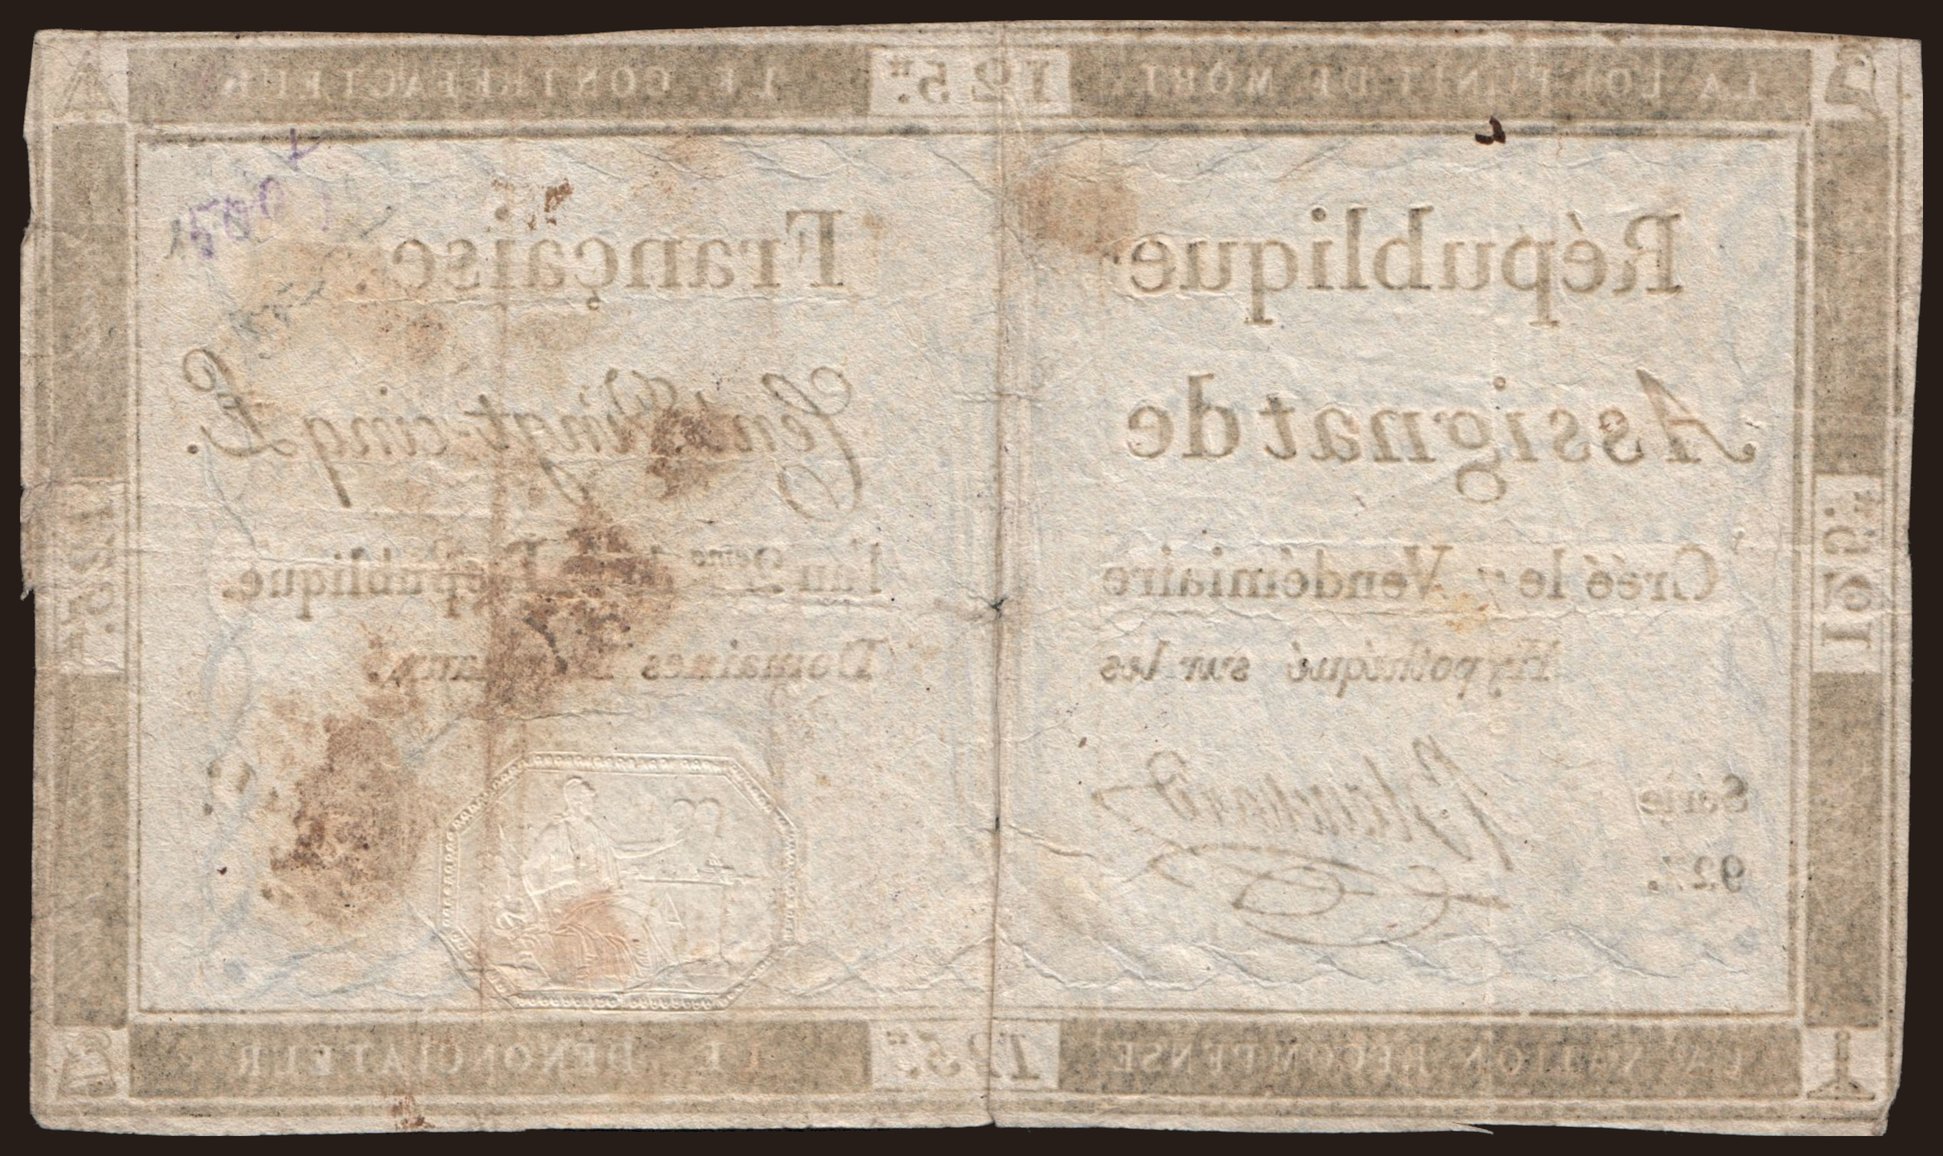 LA LOI PUNIT DE MORT 125.# LE CONTREFACTEUR
République Française
Assignat de Cent Vingt-cinq L.
Créé le 7 Vendémiaire l'an 2eme de la République.
Hypothéqué sur les Domaines Nationaux.
Série
LA NATION RÉCOMPENSE 125.# LE DÉNONCIATEUR
125.#
125.#
500